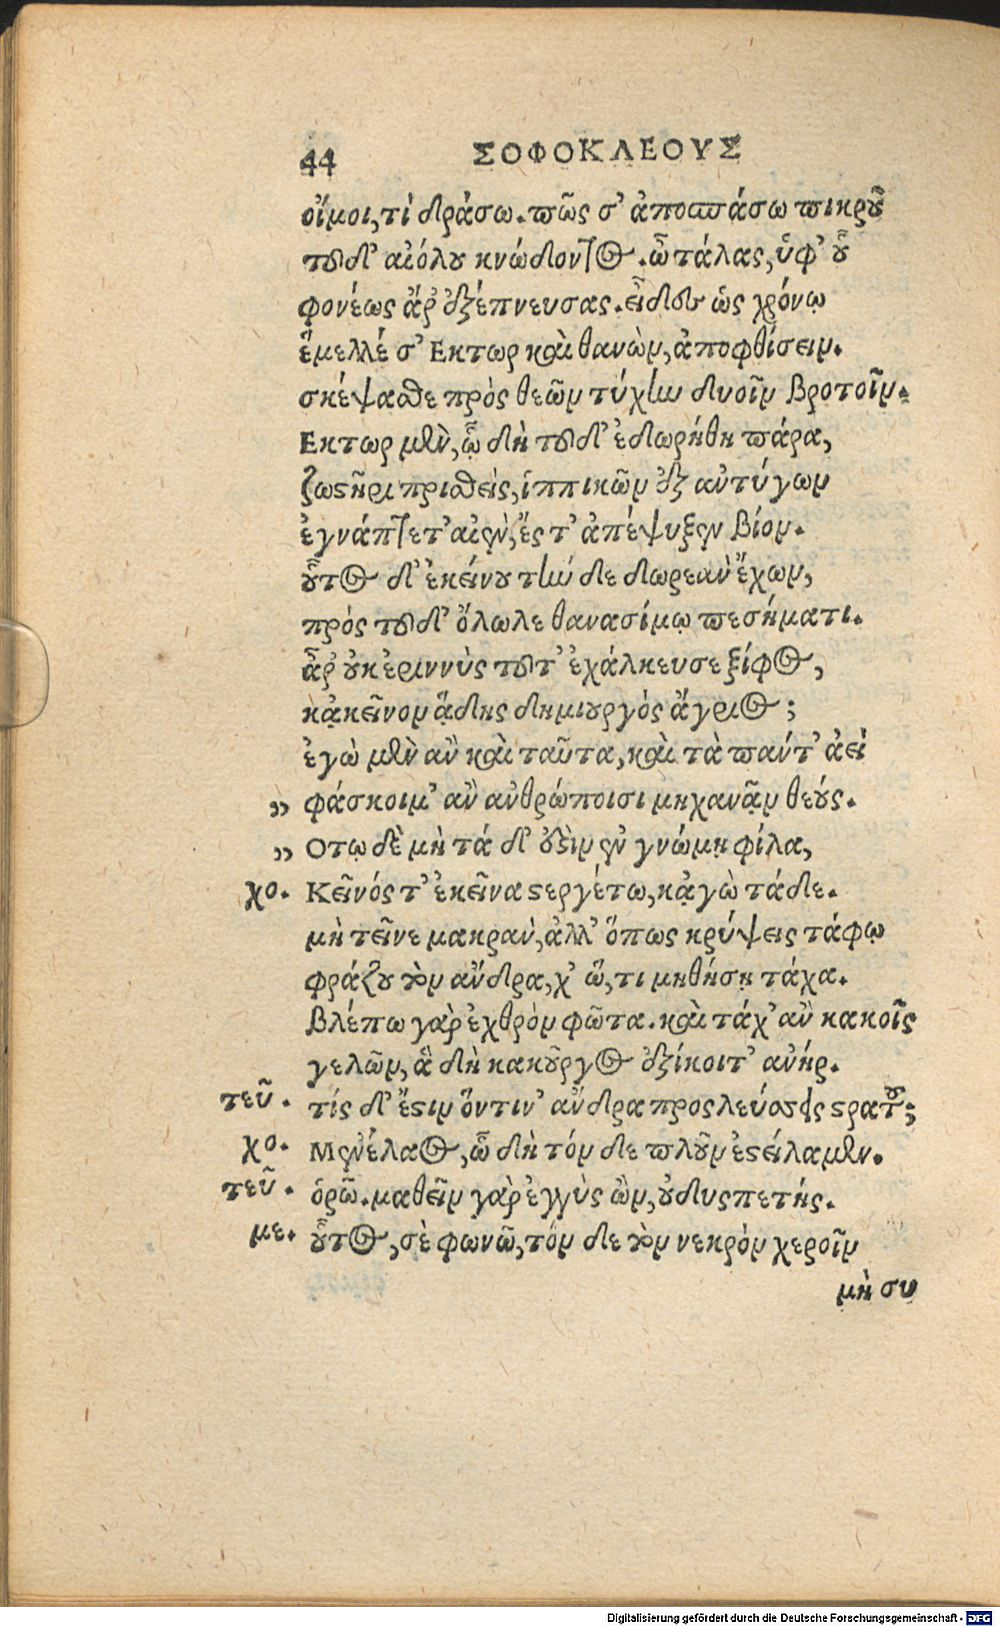 44 ΣΟΦΟΚΛΕΟΥΣ
οἴμοι, τὶ δράσω. πῶς σ' ἀποσπάσω πικροῦ
τοῦδ' αἰόλου κνώδοντος. ὦ τάλας, ὑφ' οὗ
φονέως ἄρ' ἐξέπνευσας. εἶδες ὡς χρόνῳ
ἔμελλέ σ' Εκτωρ καὶ θανὼν, ἀποφθίσειν.
σκέψασθε πρὸς θεῶν τύχην δυοῖν βροτοῖν.
Εκτωρ μὲν, ᾧ δὴ τοῦδ' ἐδωρήθη πάρα,
ζωστῆρι πρισθεὶς, ἱππικῶν ἐξ ἀντύγων
ἐγνάπτετ' αἰὲν, ἔς τ' ἀπέψυξεν βίον.
οὗτος δ' ἐκείνου τήν δε δωρεὰν ἔχων,
πρὸς τοῦδ' ὄλωλε θανασίμῳ πεσήματι.
ἆρ' οὐκ ἐριννὺς τοῦτ' ἐχάλκευσε ξίφος,
κᾀκεῖνον ᾅδης δημιουργὸς ἄγριος;
ἐγὼ μὲν ἂν καὶ ταῦτα, καὶ τὰ πάντ' ἀεὶ
,, φάσκοιμ' ἂν ἀνθρώποισι μηχανᾷν θεούς.
,, Οτῳ δὲ μὴ τά δ' ἐστὶν ἐν γνώμῃ φίλα,
χο. Κεῖνός τ' ἐκεῖνα στεργέτω, κᾀγὼ τάδε.
μὴ τεῖνε μακρὰν, ἀλλ' ὅπως κρύψεις τάφῳ
φράζου τὸν ἄνδρα, χ' ὥ, τι μηθήσῃ τάχα.
βλέπω γὰρ ἐχθρὸν φῶτα. καὶ τάχ' ἂν κακοῖς
γελῶν, ἃ δὴ κακοῦργος ἐξίκοιτ' ἀνήρ.
τεῦ. τίς δ' ἔστιν ὅντιν' ἄνδρα προσλεύσσεις στρατοῦ;
χο. Μενέλαος, ᾧ δὴ τόν δε πλοῦν ἐστείλαμεν.
τεῦ. ὁρῶ. μαθεῖν γὰρ ἐγγὺς ὢν, οὐ δυσπετής.
με. οὗτος, σὲ φωνῶ, τόν δε τὸν νεκρὸν χεροῖν
μὴ συ
Digitalisierung gefördert durch die Deutsche Forschungsgemeinschaft - DFG